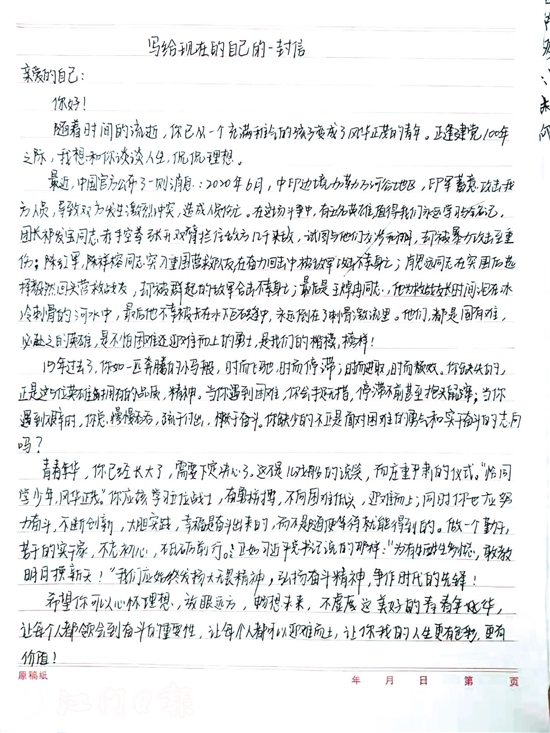 写给现在的自己的一封信
亲爱的自己：
你好！
随着时间的流逝，你已从一个充满稚的孩子变成了风华正茂的青年。正逢建党100年
之际，我想和你谈谈人生，侃侃理想。
最近，中国官方公布了一则消息：2020年6月，中印边境加勒万河谷地区，印军蓄意攻击我
方人员，导致双方发生激烈冲突，造成人员伤亡。在这场斗争中，有五名英雄值得我们永远学习与铭记，
团长祁发宝同志，赤手空拳张开双臂拦住敌方几千来敌，试图与他们交涉，却被暴力攻击至重
伤；陈红军、陈祥榕同志突入重围营救队友，在奋力回击中被敌军不幸身亡；肖思远同志在突围后选
择毅然回头营救战友，却被群起的敌军合击不幸身亡；最后是王焯冉同志，他为救战友长时间泡在冰
冷刺骨的河水中，最后他不幸被卡在水下石缝中，永远倒在了刺骨激流里。他们，都是国有难，
必赴之的英雄，是不怕困难迎难而上的勇士，是我们的楷模、榜样！
15年过去了，你如一匹奔腾的小马驹，时而飞驰，时而停滞；时而进取，时而颓。你缺失的，
正是这5位英雄身上拥有的品质、精神。当你遇到困难，你会手足无措，停滞不前甚至抱头痛哭；当你
遇到艰辛时，你总慢慢吞吞，疏于付出，懒于奋斗。你缺少的不正是面对困难的勇气和实干奋斗的志向
吗？
青春年华，你已经长大了，需要下定决心了。这不是儿戏般的说笑，而庄重严肃的仪式。“恰同
学少年，风华正茂。”你应该学习五位战士，奋勇拼搏，不向困难低头，迎难而上；同时你也应努
力奋斗，不断创新，大胆实践，幸福是奋斗出来的，而不是随便等待就能得到的。做一个勤于、
苦干的实干家，不忘初心，不忘前行。正如习近平总书记说的那样：“为有牺牲多壮志，敢教
日月换新天！”我们应始终发扬大无畏精神，弘扬奋斗精神，争作时代的先锋！
希望你可以心怀理想、放眼远方，畅想未来，不虚度这美好的青春年华，
让每个人都领会到奋斗的重要性，让每个人都可以迎难而上，让你我的人生更有色彩，更有
价值！
原稿纸 年 月 日 第 页
江门日报